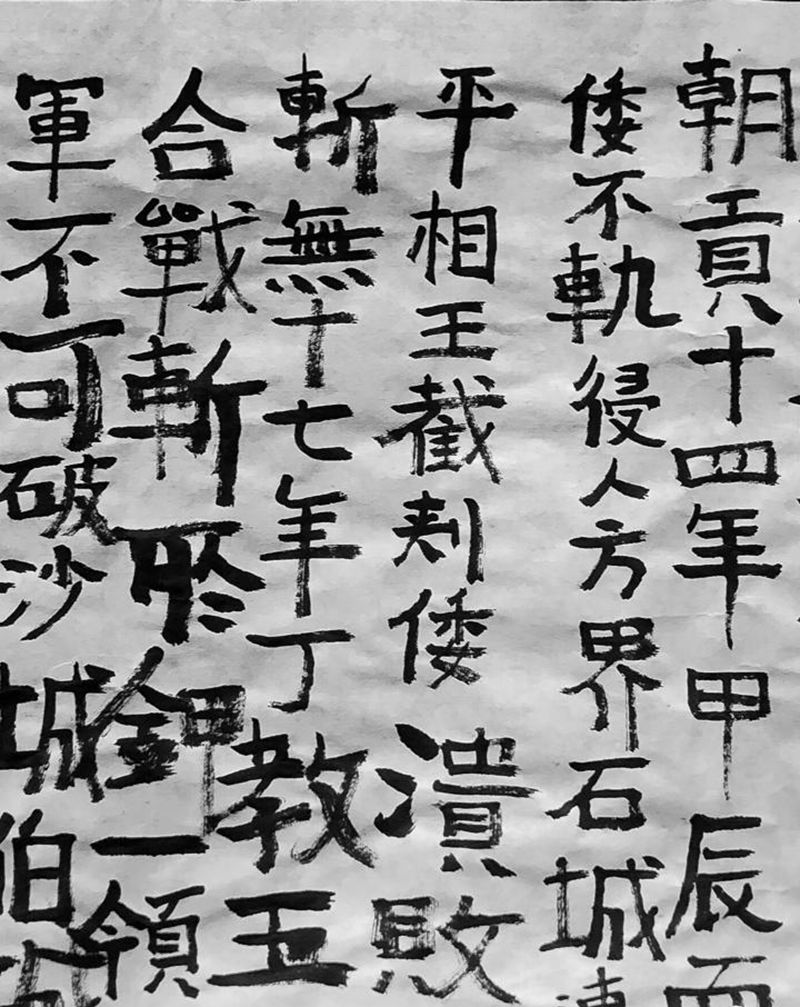 朝貢十四年甲辰而
倭不軌侵人方界石城
平相王截刾倭潰敗
斬無十七年丁教五
合戰斬鉀一領
軍不可破沙城伯